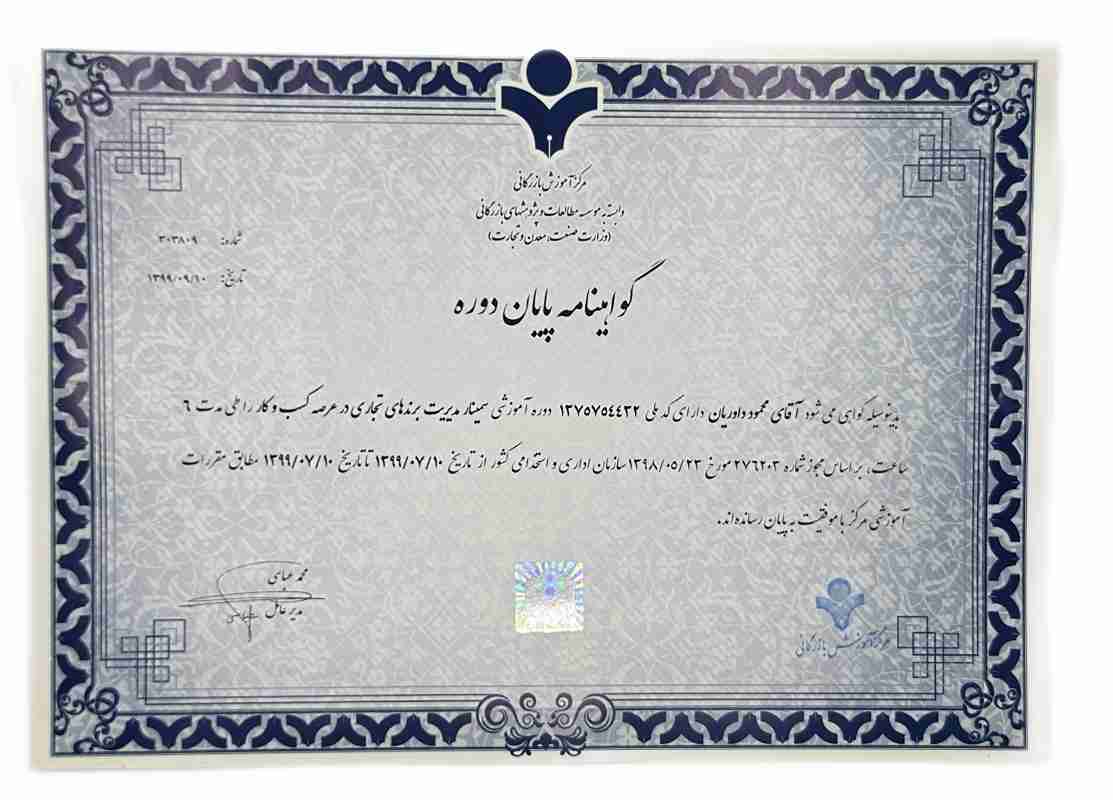 مرکز آموزش بازرگانی
وابسته به موسسه مطالعات و پژوهشهای بازرگانی
(وزارت صنعت، معدن و تجارت)
شماره: ۳۰۳۸۰۹
تاریخ: ۱۳۹۹/۰۹/۱۰
گواهینامه پایان دوره
بدینوسیله گواهی می شود آقای محمود داوریان دارای کد ملی ۱۳۷۵۷۵۴۴۳۲ دوره آموزشی سمینار مدیریت برندهای تجاری در عرصه کسب و کار را طی مدت ۶
ساعت، بر اساس مجوز شماره ۲۷۶۲۰۳ مورخ ۱۳۹۸/۰۵/۲۳ سازمان اداری و استخدامی کشور از تاریخ ۱۳۹۹/۰۷/۱۰ تا تاریخ ۱۳۹۹/۰۷/۱۰ مطابق مقررات
آموزشی مرکز با موفقیت به پایان رسانده‌اند.
محمد عباسی
مدیر عامل
مرکز آموزش بازرگانی